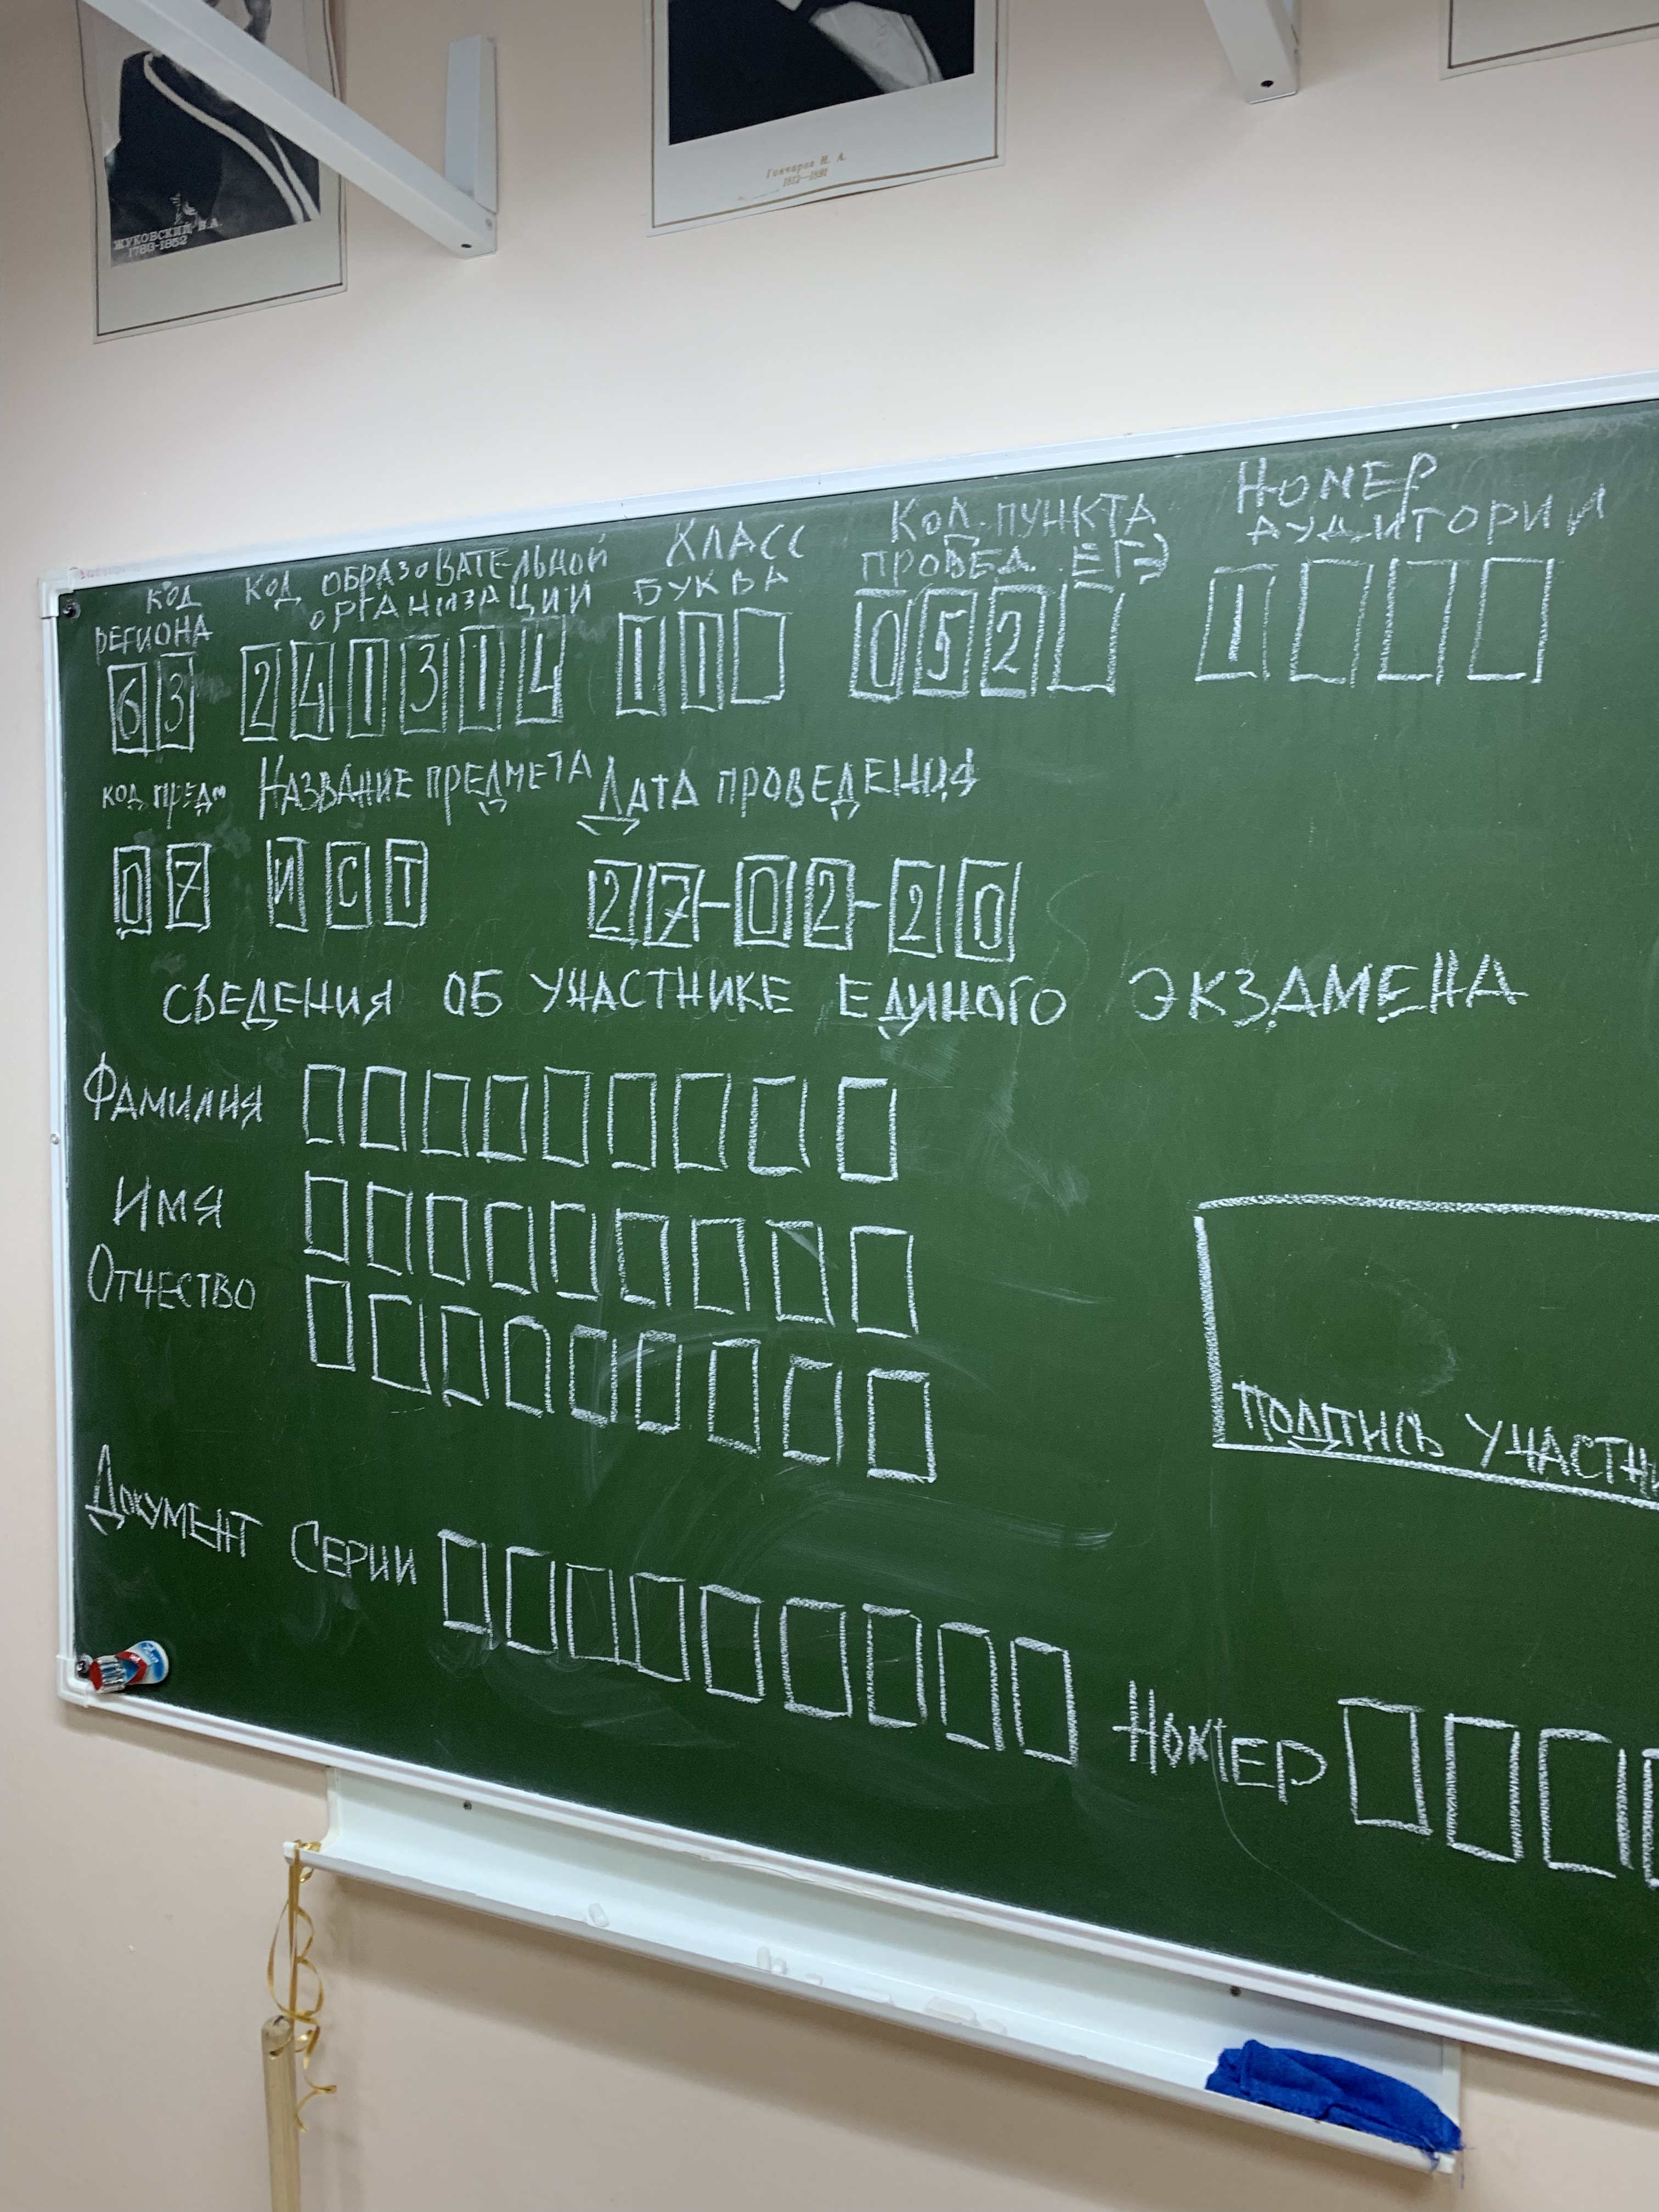 ЖУКОВСКИЙ В.А.
1783-1852
Гончаров И. А.
1812—1891
КОД
РЕГИОНА
63
КОД ОБРАЗОВАТЕЛЬНОЙ
ОРГАНИЗАЦИИ
241314
КЛАСС
БУКВА
11
КОД ПУНКТА
ПРОВЕД. ЕГЭ
052
НОМЕР
АУДИТОРИИ
1
КОД ПРЕДМ НАЗВАНИЕ ПРЕДМЕТА ДАТА ПРОВЕДЕНИЯ
07 ИСТ 27-02-20
СВЕДЕНИЯ ОБ УЧАСТНИКЕ ЕДИНОГО ЭКЗАМЕНА
ФАМИЛИЯ
ИМЯ
ОТЧЕСТВО
ПОДПИСЬ УЧАСТНИ
ДОКУМЕНТ СЕРИИ
НОМЕР